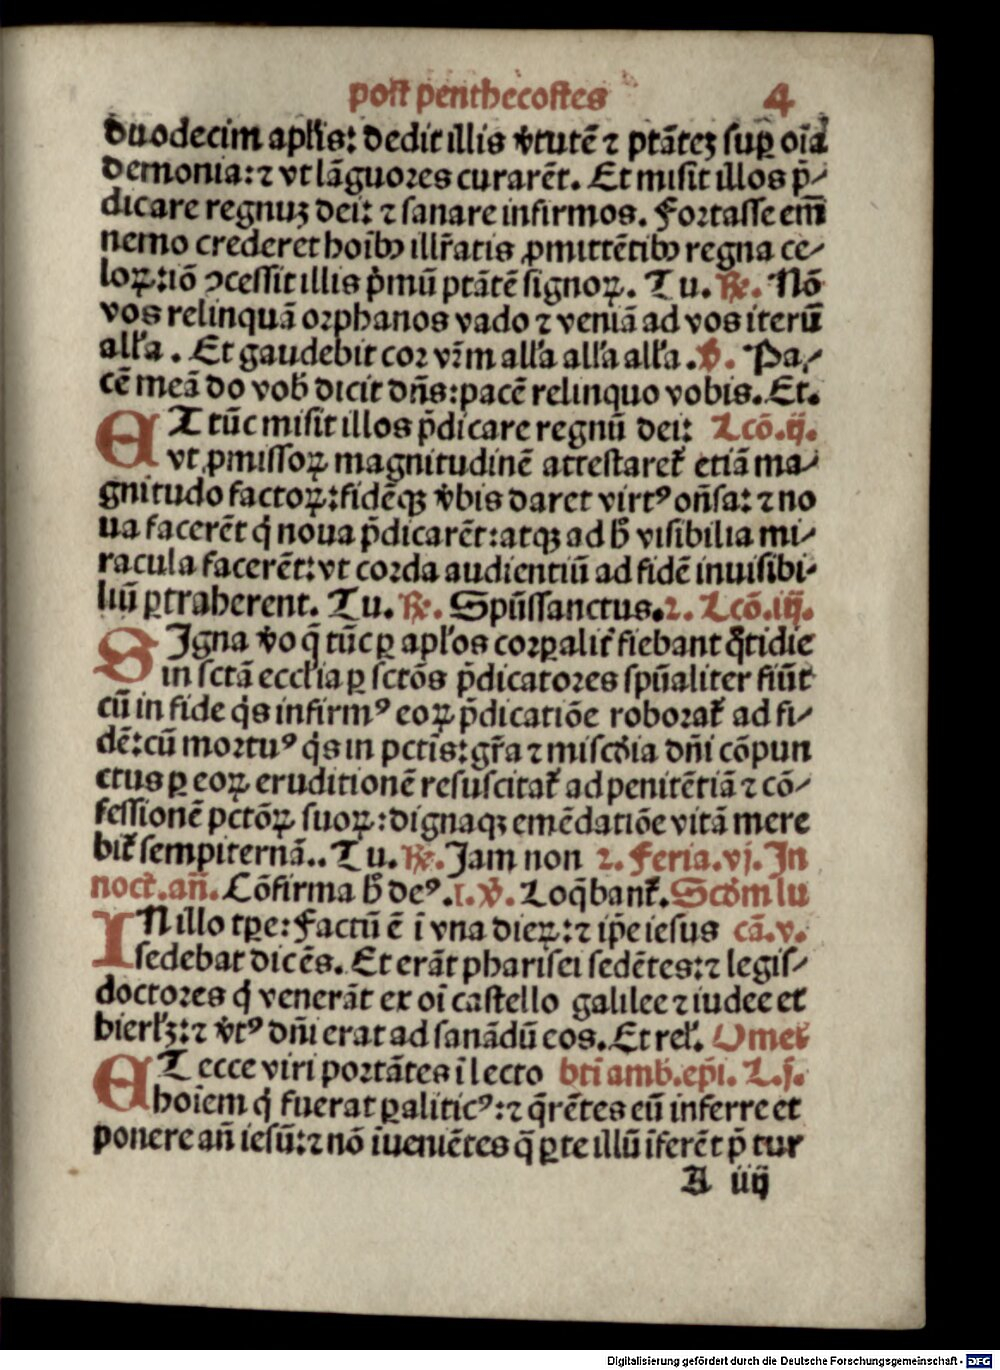 post penthecostes 4
duodecim apl'is: dedit illis v̓tutē ⁊ ptātēꝫ sup̱ oīa
demonia: ⁊ vt lāguores curarēt. Et misit illos p̄-
dicare regnuꝫ dei: ⁊ sanare infirmos. Fortasse em̄
nemo crederet hoībꝰ illr̄atis ꝓmittētibꝰ regna ce-
loꝝ: iō ꝯcessit illis p̓mū ptātē signoꝝ. Tu. ℟. Nō
vos relinquā orphanos vado ⁊ veniā ad vos iterū
all'a. Et gaudebit cor vr̄m all'a all'a all'a. ℣. Pa-
cē meā do vob̄ dicit dn̄s: pacē relinquo vobis. Et.
ET tūc misit illos p̄dicare regnū dei: Lcō.ij.
vt ꝓmissoꝝ magnitudinē attestaret᷑ etiā ma-
gnitudo factoꝝ: fidēqꝫ v̓bis daret virtꝰ on̄sa: ⁊ no
ua facerēt q̇ noua p̄dicarēt: atqꝫ ad h̄ visibilia mi-
racula facerēt: vt corda audientiū ad fidē inuisibi-
liū ꝑtraherent. Tu. ℟. Spūssanctus.2. Lcō.iij.
SIgna v̓o q̄ tūc ꝑ apl'os corꝑalit᷑ fiebant q̊tidie
in sctā eccl'ia ꝑ sctōs p̄dicatores spūaliter fiūt
cū in fide q̇s infirmꝰ eoꝝ p̄dicatiōe roborat᷑ ad fi-
dē: cū mortuꝰ q̇s in pctīs: gr̄a ⁊ miscd̓ia dn̄i cōpun
ctus ꝑ eoꝝ eruditionē resuscitat᷑ ad penitētiā ⁊ cō-
fessionē pctōꝝ suoꝝ: dignaqꝫ emēdatiōe vitā mere
bit᷑ sempiternā.. Tu. ℟. Jam non 2. Feria.vj. In
noct᷑. an̄. Cōfirma h̄ deꝰ.1. ℣. Loq̄bant᷑. Scd̓m lu
IN illo tꝑe: Factū ē ī vna dieꝝ: ⁊ ip̄e iesus cā.v.
sedebat dicēs. Et erāt pharisei sedētes: ⁊ legis-
doctores q̇ venerāt ex oī castello galilee ⁊ iudee et
hierl'ꝫ: ⁊ v̓tꝰ dn̄i erat ad sanādū eos. Et rel'. Omel'
ET ecce viri portātes ī lecto bti amb. epī. L.j.
hoīem q̇ fuerat ꝑaliticꝰ: ⁊ q̄rētes eū inferre et
ponere an̄ iesū: ⁊ nō īueniētes q̄ ꝑte illū īferēt p̄ tur
A iiij
Digitalisierung gefördert durch die Deutsche Forschungsgemeinschaft - DFG